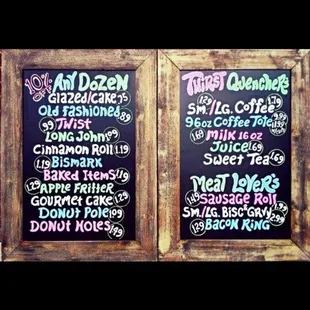 10% Any Dozen
Glazed/Cake .79
Old Fashioned .89
.99 Twist
Long John 1.09
Cinnamon Roll 1.19
1.19 Bismark
Baked Items 1.19
1.29 Apple Fritter
Gourmet Cake 1.29
Donut Pole 1.09
Donut Holes 1.99
Thirst Quenchers
1.29 1.79
Sm./Lg. Coffee
96oz Coffee Tote
1.69 Milk 16oz
Juice 1.69
Sweet Tea 1.69
Meat Lover's
1.49 Sausage Roll
Sm./Lg. Bisc & Grvy 1.99 2.99
1.29 Bacon Ring